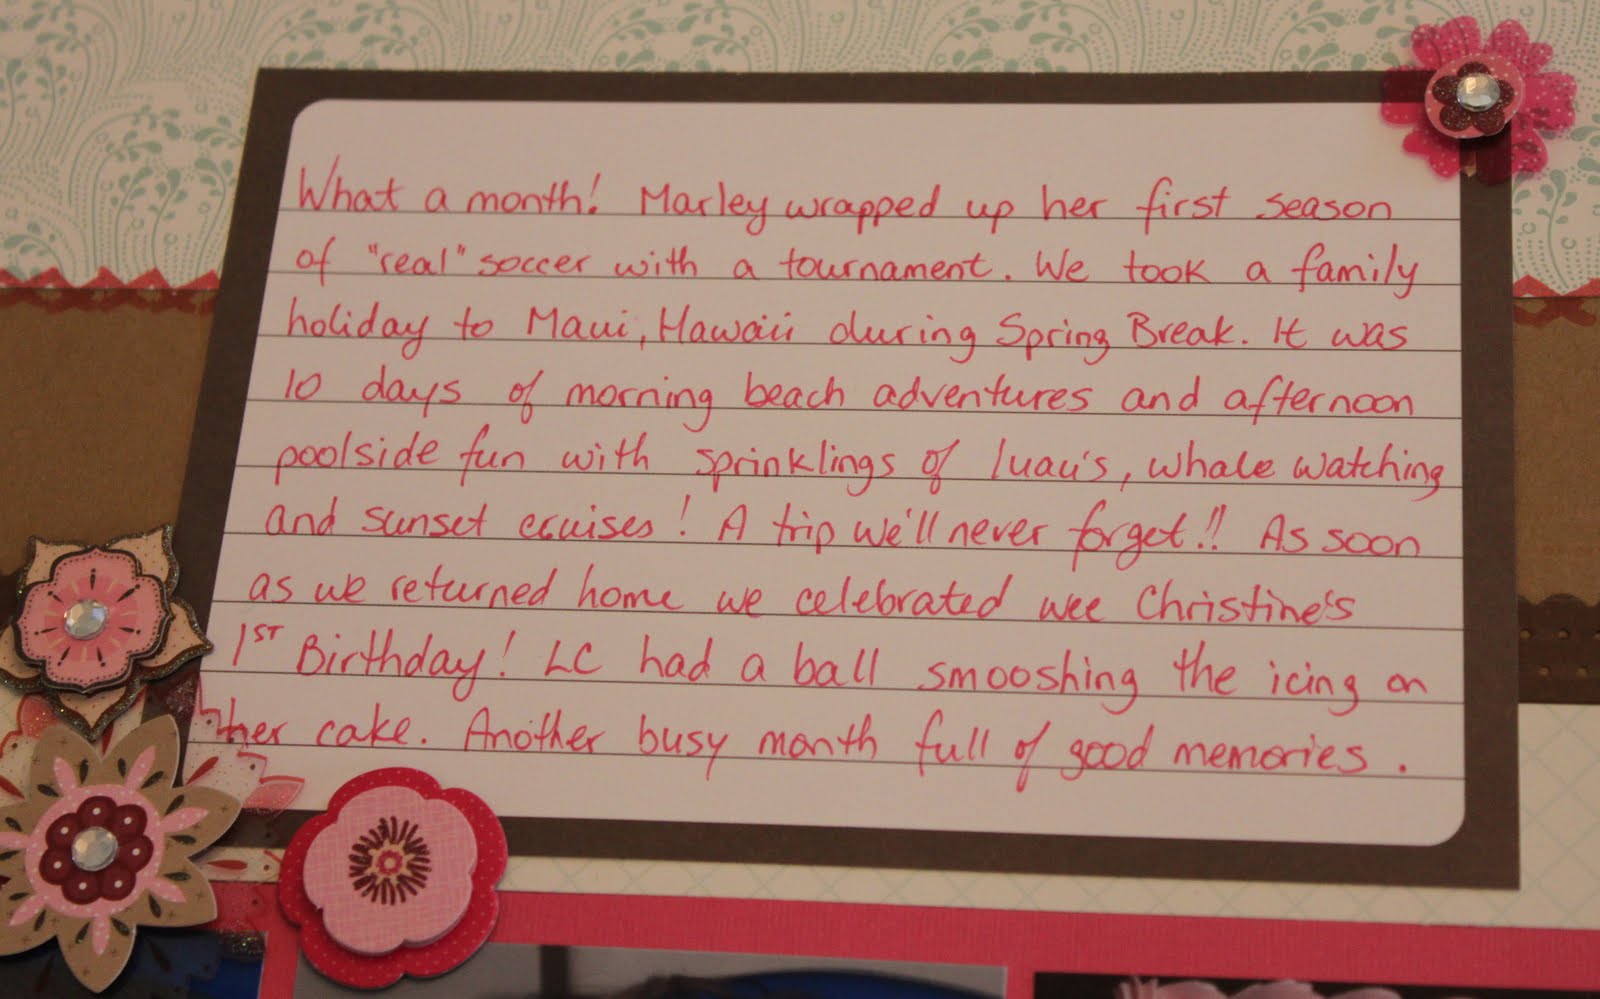 What a month! Marley wrapped up her first season
of "real" soccer with a tournament. We took a family
holiday to Maui, Hawaii during Spring Break. It was
10 days of morning beach adventures and afternoon
poolside fun with sprinklings of luau's, whale watching
and sunset cruises! A trip we'll never forget!! As soon
as we returned home we celebrated wee Christine's
1ST Birthday! LC had a ball smooshing the icing on
her cake. Another busy month full of good memories.